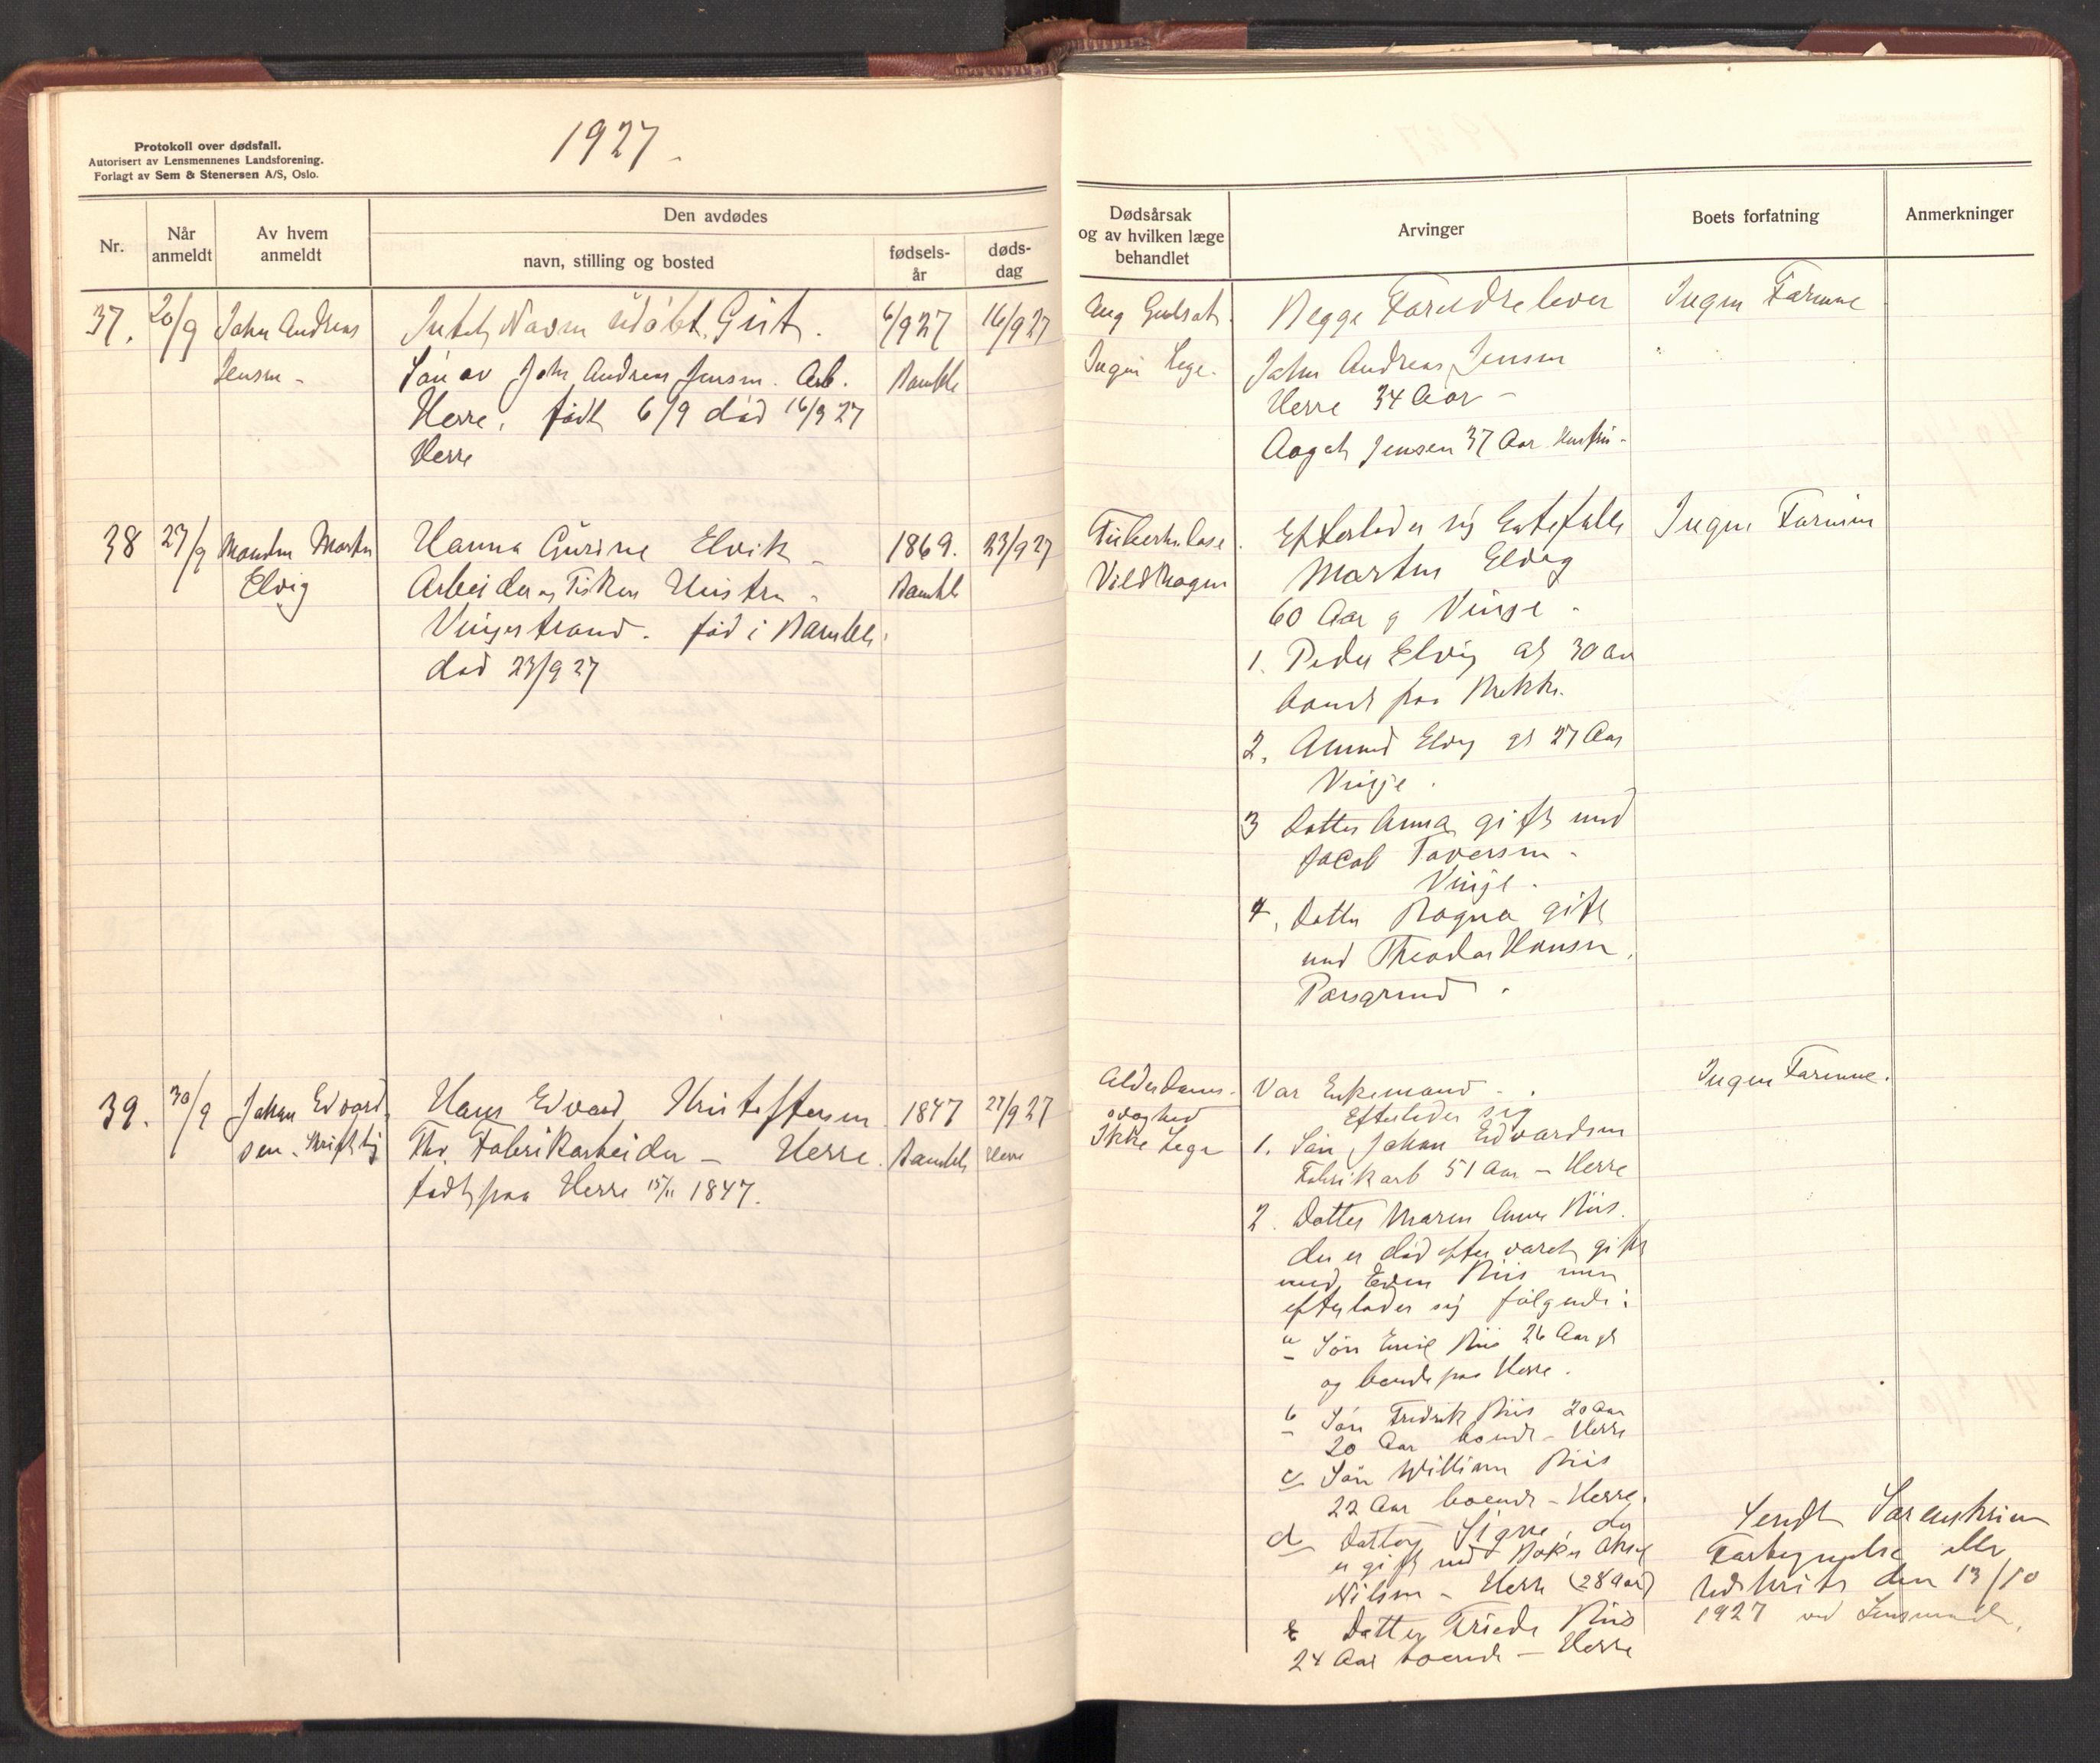 Protokoll over dødsfall.
Autorisert av Lensmennenes Landsforening.
Forlagt av Sem & Stenersen A/S, Oslo.
1927.
Nr.
Når anmeldt
Av hvem anmeldt
Den avdødes
navn, stilling og bosted
fødsels-
år
døds-
dag
37.
20/9
John Andreas
Jensen -
Intet Navn udøbt Gut.
Søn av John Andreas Jensen. Arb.
Herre, født 6/9 död 16/9 27
Herre
6/9 27
Bamble
16/9 27
38
27/9
Martin
Elvig
Hanna Gurine Elvik -
Arbeider og Fisker Hustru -
Vinjestrand. fød i Bamble.
död 23/9 27
1869.
Bamble
23/9 27
39.
30/9
Johan Edvard
sen.
Hans Edvard Kristoffersen
Fhv. Fabrikarbeider - Herre.
født paa Herre 15/11 1847.
1847
Bamble
27/9 27
Herre
Dødsårsak
og av hvilken læge
behandlet
Arvinger
Boets forfatning
Anmerkninger
Ingen Lege.
Begge Foreldre lever
John Andreas Jensen
Herre 34 Aar -
Aagot Jensen 37 Aar Hustru -
Ingen Formue
Tuberkulose.
Vildhagen
Efterlader sig Ektefelle
Martin Elvig
60 Aar g Vinje -
1. Peder Elvig gl 30 aar
boende paa
2. Amund Elvig gl 27 Aar
Vinje.
3 Datter Anna gift med
Jacob -
Vinje.
4, Datter Ragna gift
med Theodor Hansen,
Porsgrund.
Ingen Formue
Alderdoms-
svaghed
Ikke Lege
Var Enkemand -.
Efterlader sig
1. Søn Johan Edvardsen
Fabrikarb 51 Aar - Herre
2. Datter Maren Anne Riis.
der er död efter varet gift
med Riis men
efterlader sig følgende:
a Søn Emil Riis 26 Aar gl
og boende paa Herre.
b Søn Fredrik Riis 20 Aar
20 Aar boende - Herre
c Søn William Riis
22 Aar boende - Herre.
d Datter Signe, der
er gift med Baker
Nilsen - Herre (28 Aar)
e Datter Frieda Riis
24 Aar boende - Herre
Ingen Formue.
Sendt Sorenskriver
eller
Udskrift den 13/10
1927 ved Lensmanden.